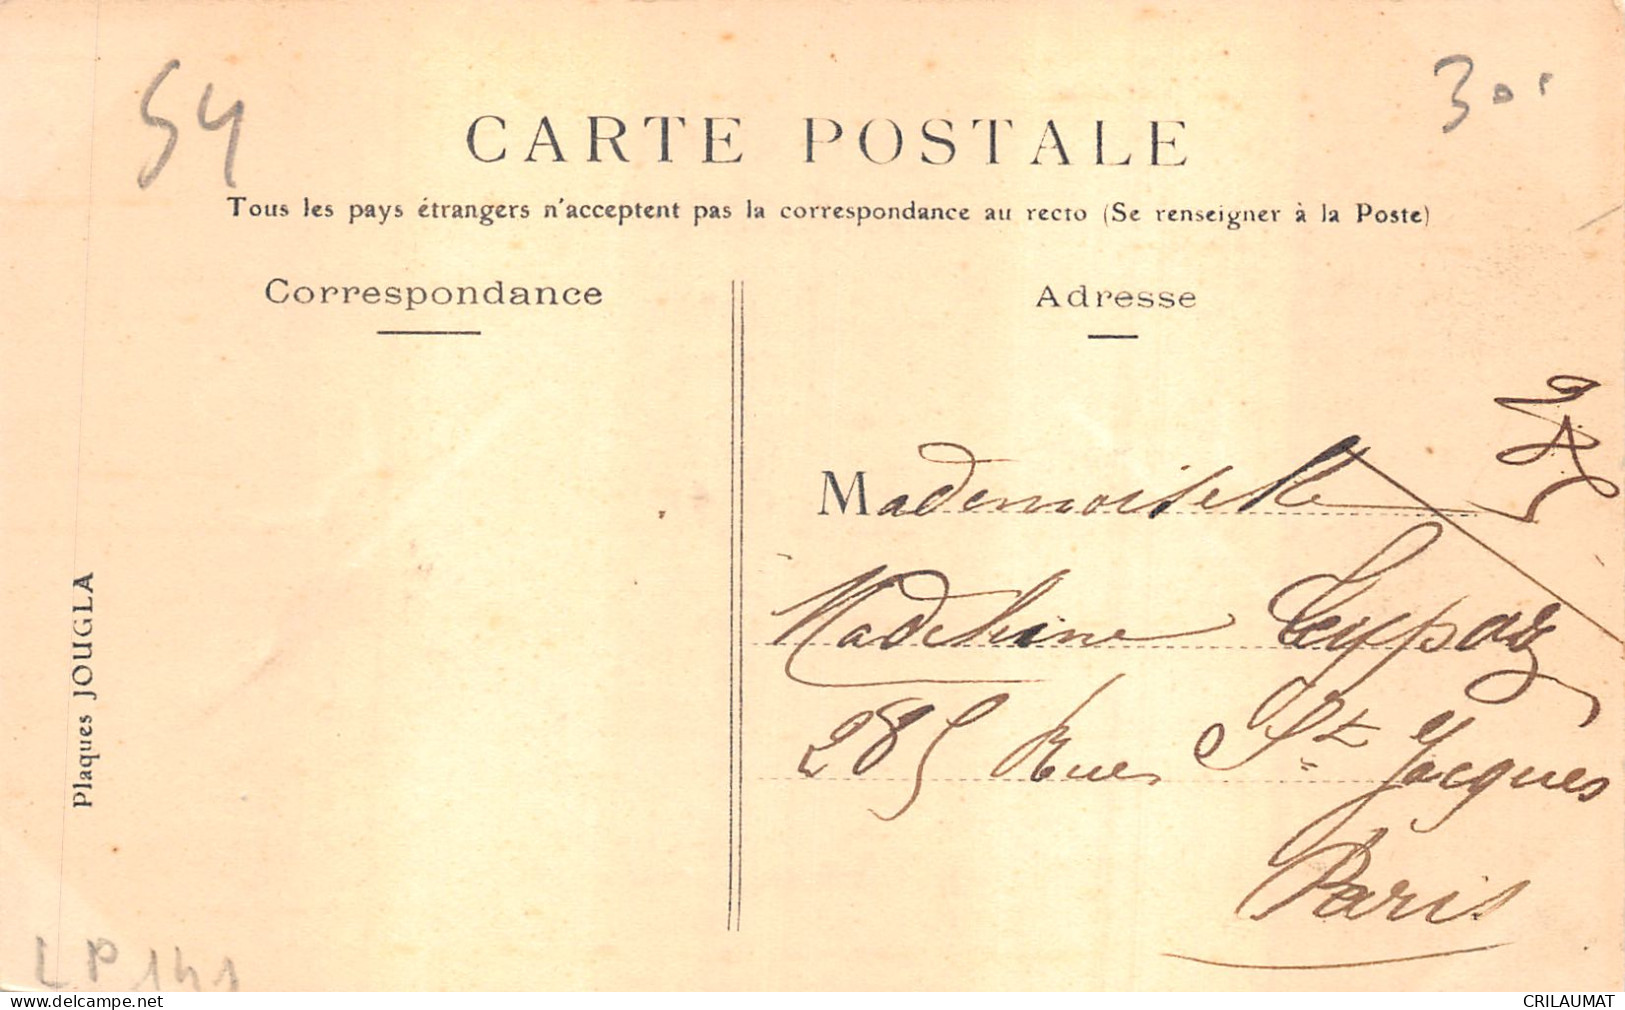 54
CARTE POSTALE
Tous les pays étrangers n'acceptent pas la correspondance au recto (Se renseigner à la Poste)
Correspondance
Adresse
Mademoiselle
Madeleine
285 Rue St Jacques
Paris
Plaques JOUGLA
LP 141
http://www.delcampe.net
CRILAUMAT